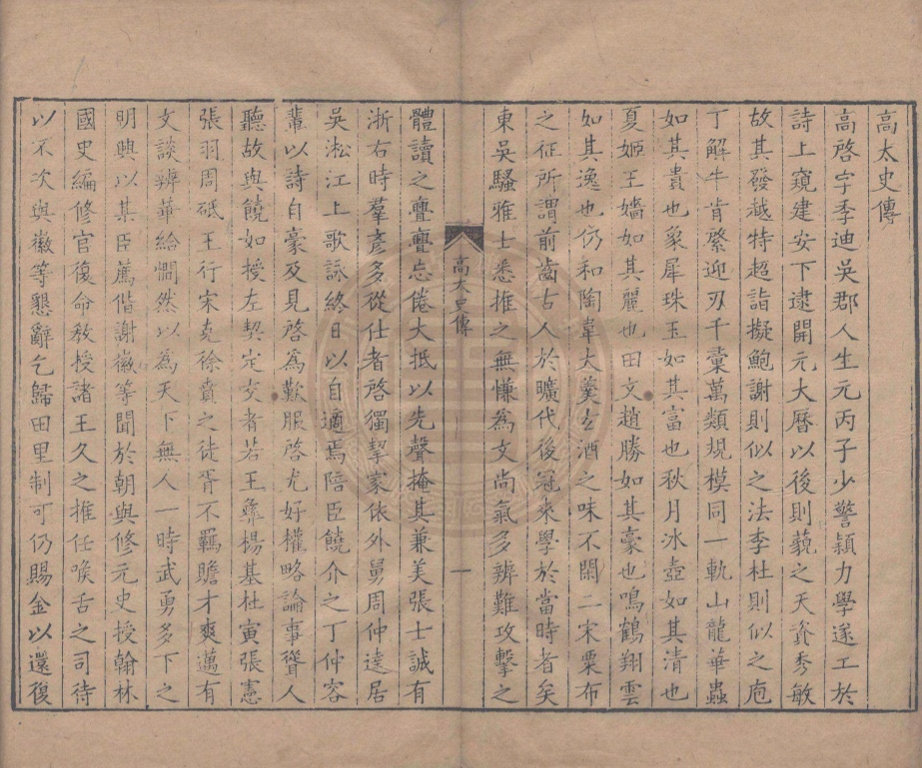 高太史傳
高啓字季迪吳郡人生元丙子少警穎力學遂工於
詩上窺建安下逮開元大曆以後則藐之天資秀敏
故其發越特超詣擬鮑謝則似之法李杜則似之庖
丁解牛肯綮迎刃千彙萬類規模同一軌山龍華蟲
如其貴也象犀珠玉如其富也秋月冰壺如其清也
夏姬王嬙如其麗也田文趙勝如其豪也鳴鶴翔雲
如其逸也仿和陶韋大羹玄酒之味不閑二宋粟布
之征所謂前齒古人於曠代後冠來學於當時者矣
東吳騷雅士悉推之無慊為文尚氣多辨難攻擊之
高太史傳
一
體讀之亹亹忘倦大抵以先聲掩其兼美張士誠有
浙右時羣彥多從仕者啓獨挈家依外舅周仲達居
吳淞江上歌詠終日以自適焉陪臣饒介之丁仲容
輩以詩自豪及見啓為歎服啓尤好權略論事聳人
聽故與饒如授左契定交者若王彝楊基杜寅張憲
張羽周砥王行宋克徐賁之徒胥不羈贍才爽邁有
文談辨華給憪然以為天下無人一時武勇多下之
明興以其臣薦偕謝徽等聞於朝與修元史授翰林
國史編修官復命教授諸王久之推任喉舌之司待
以不次與徽等懇辭乞歸田里制可仍賜金以還復